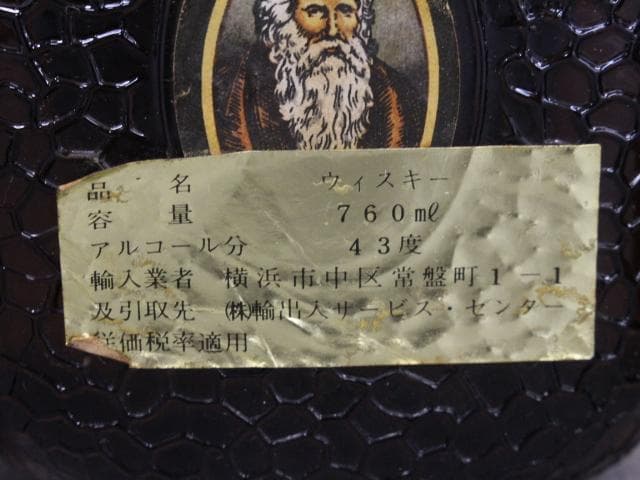 品名 ウィスキー
容量 760ml
アルコール分 43度
輸入業者 横浜市中区常盤町1-1
及引取先 (株)輸出入サービス・センター
従価税率適用